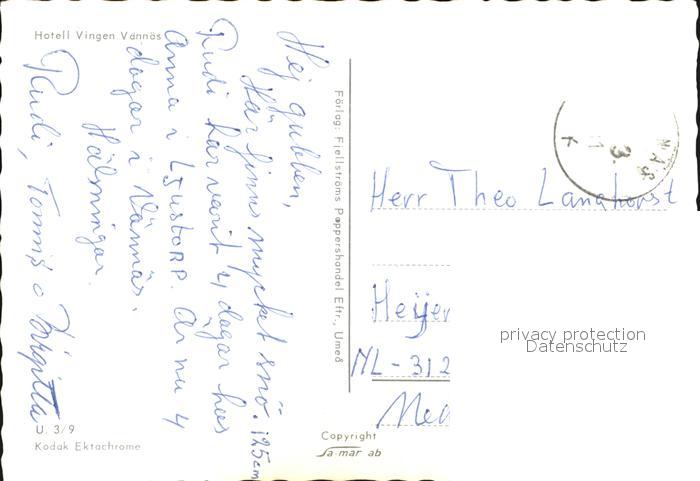 Hotell Vingen Vännäs
Hej gubben,
Här finns mycket snö. 125cm
Rudi har varit 4 dagar hos
Anna i Ljustorp. Är nu 4
dagar i Vännäs.
Hälsningar.
Rudi, Tommy o Birgitta
U. 3/9
Kodak Ektachrome
Förlag: Fjellströms Pappershandel Eftr., Umeå
Copyright
Sa-mar ab
Herr Theo Langhorst
Heijer
NL-312
privacy protection
Datenschutz